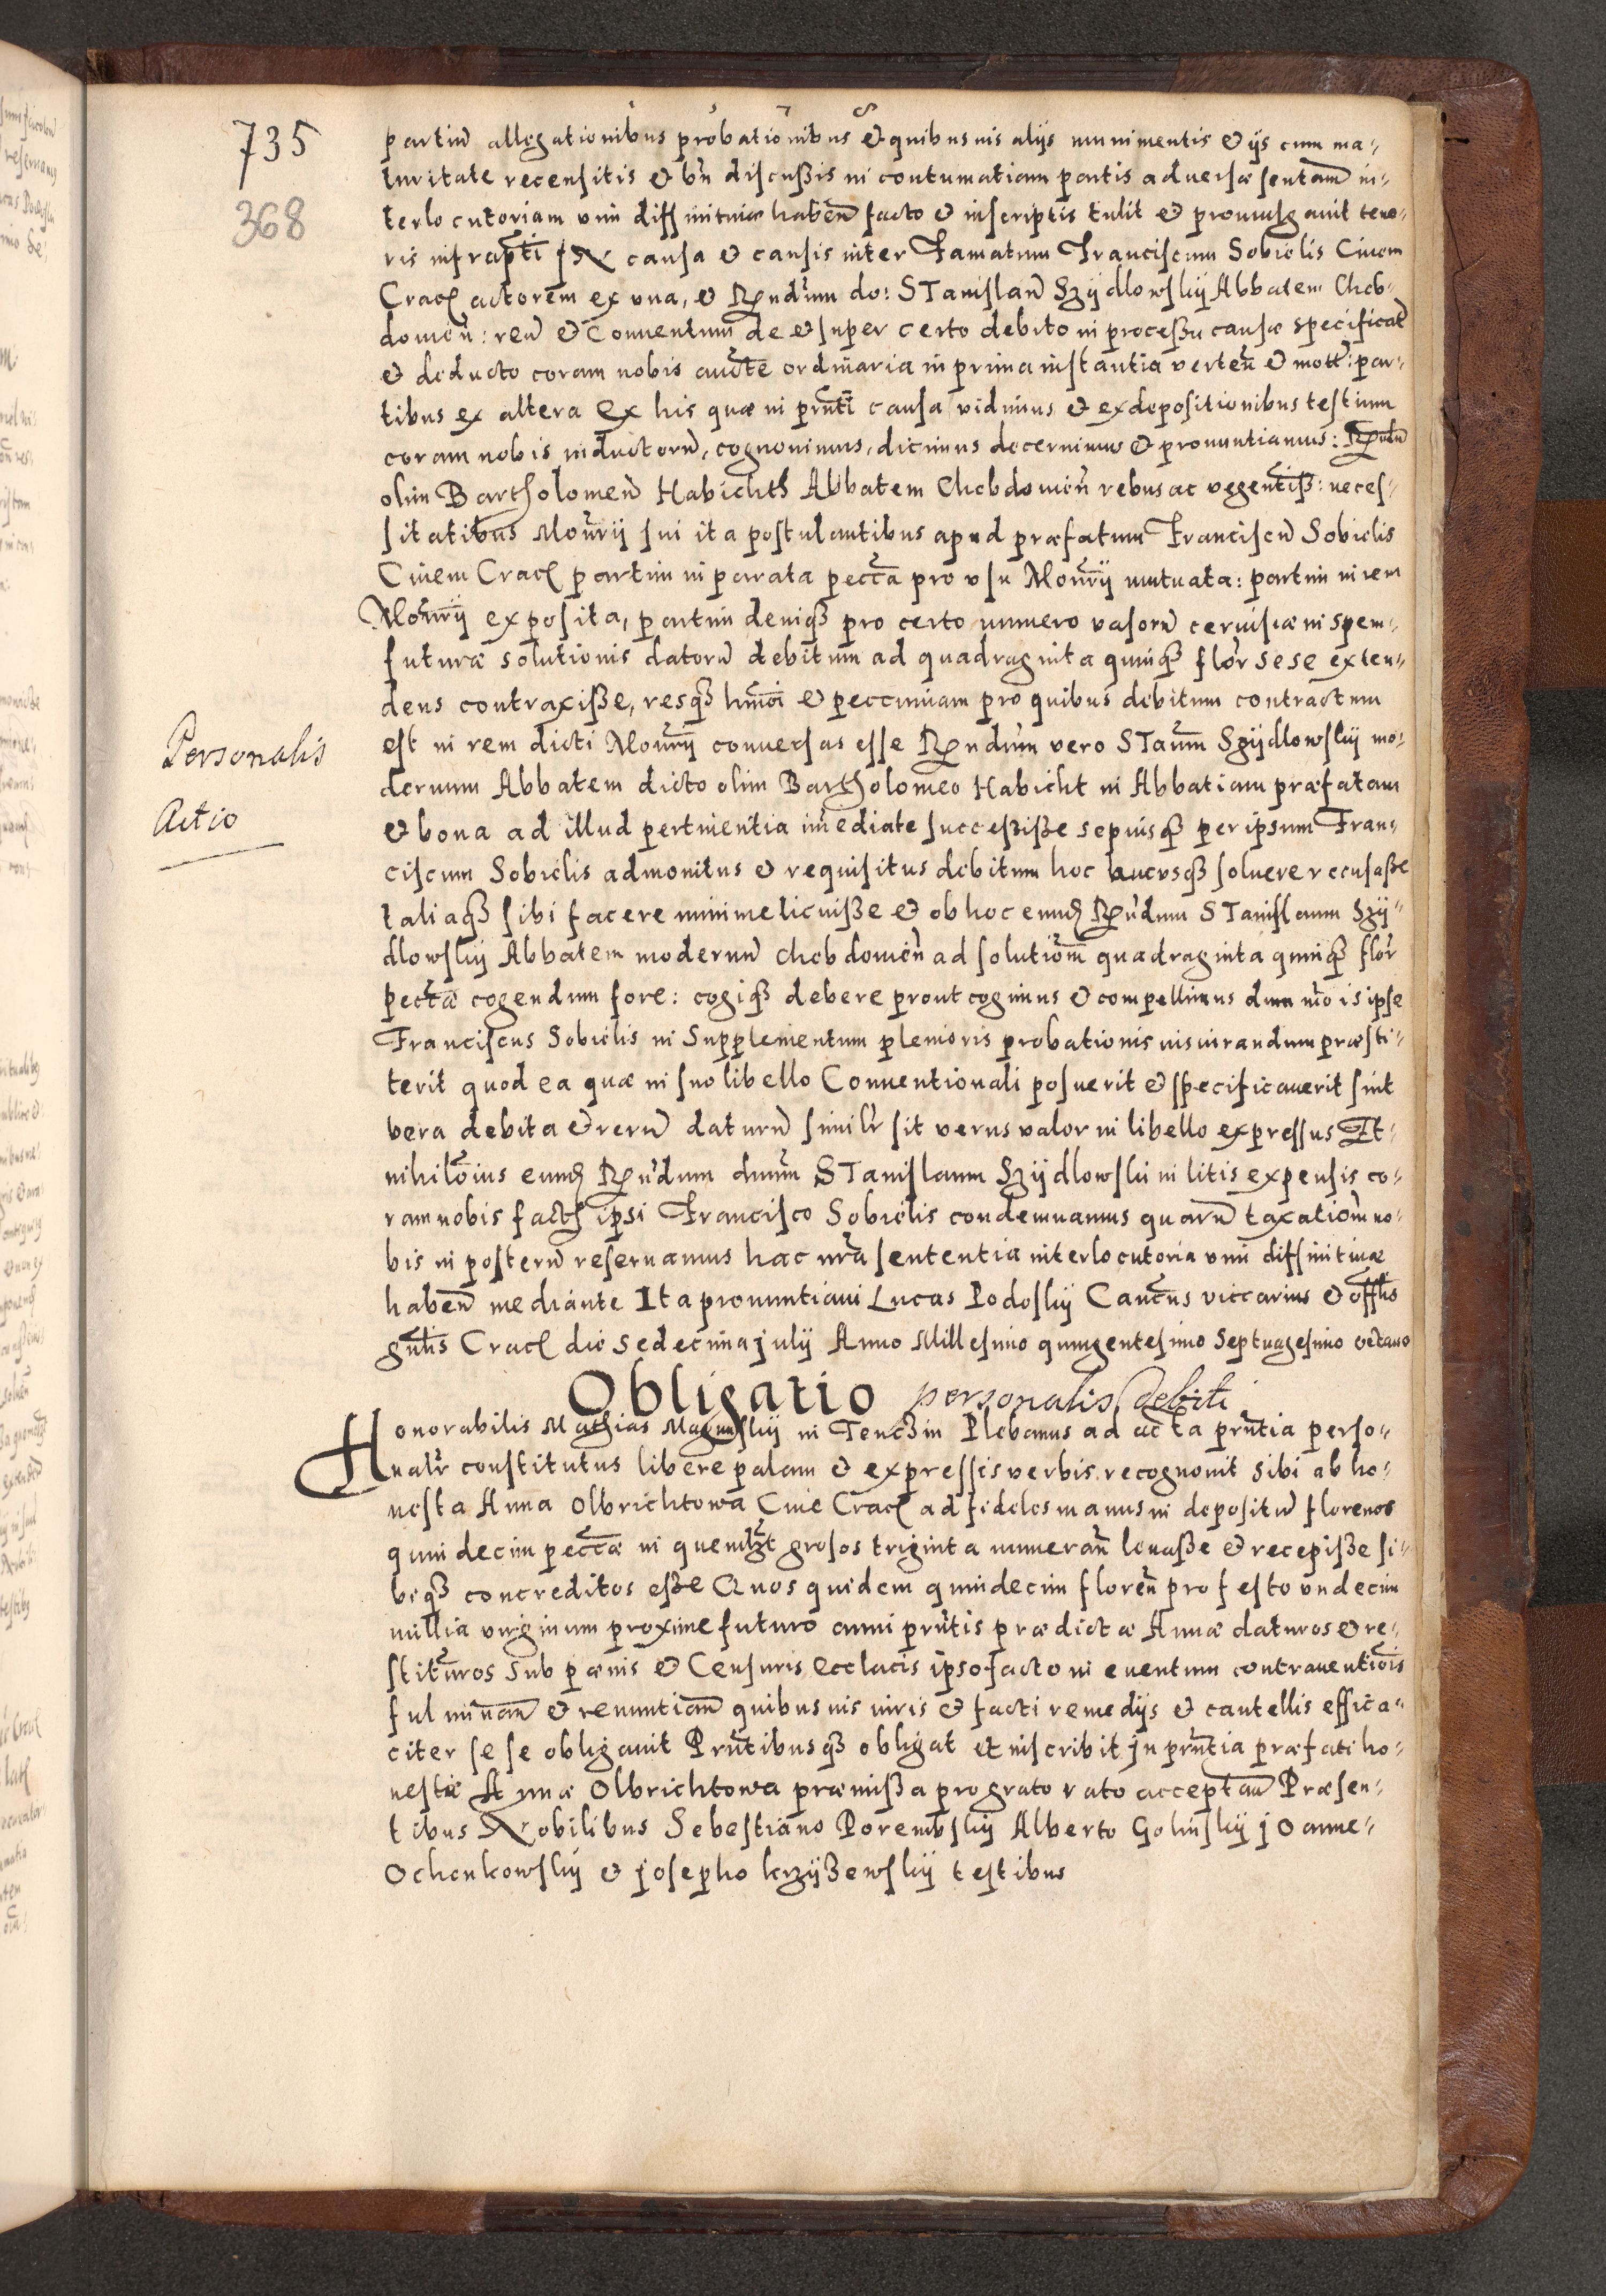 735
368
partiũ allegationibus probationibus & quibusuis alijs munimentis & ijs cum ma-
turitate recensitis & bñ discußis in contumatiam partis aduersæ sentam̃ in-
terlocutoriam vim diffinitiuæ habeñ facto & inscriptis tulit & promulgauit teno-
ris infrapti IN causa & causis inter Famatum Franciscum Sobielis Ciuem
Crac actorem ex vna, & Rñdum do: Stanislaũ Szÿdlowskÿ Abbatem Cheb-
domeñ: reũ & Conuentum de & super certo debito in proceßu causæ specificat̃
& deducto coram nobis aucte ordinaria in prima instantia verteñ & mott: par-
tibus ex altera Ex his quæ in prñti causa vidimus & ex depositionibus testium
coram nobis inductorũ, cognouimus, dicimus decernimus & pronuntiamus: Rñdũ
olim Bartholomeũ Habichth Abbatem Chebdomeñ rebus ac vegentiß: neces-
sitatibus Moñrÿ sui ita postulantibus apud præfatum Franciscũ Sobielis
Ciuem Crac partim in parata pecc̃a pro vsu Moñrÿ mutuata: partim in rem
Moñrÿ exposita, partim deniq pro certo numero vasorũ ceruisiæ in spem-
futuræ solutionis datorũ debitum ad quadraginta quinq flor̃ sese exten-
dens contraxiße, resq hm̃oi & peccuniam pro quibus debitum contractum
est in rem dicti Moñrÿ conuersas esse Rñdum vero Staũm Szÿdlowskÿ mo-
dernum Abbatem dicto olim Bartholomeo Habicht in Abbatiam præfatam
& bona ad illud pertinentia imediate succeßiße sepiusq per ipsum Fran-
ciscum Sobielis admonitus & requisitus debitum hoc hucusq soluere recusaße
taliaq sibi facere minime licuiße & ob hoc eund Rñdum Stanislaum Szÿ-
dlowskÿ Abbatem modernũ chebdomeñ ad solutiom̃ quadraginta quinq flor̃
pecc̃æ cogendum fore: cogiq debere prout cogimus & compellimus dum mõ is ipse
Franciscus Sobielis in Supplementum plenioris probationis iusiurandum præsti-
terit quod ea quæ in suo libello Conuentionali posuerit & specificauerit sint
vera debita & rerũ datarũ simil̃r sit verus valor in libello expressus Et-
nihilõius eund Rñdum dnũm Stanislaum Szÿdlowski in litis expensis co-
ram nobis fact ipsi Francisco Sobielis condemnamus quarũ taxatiom̃ no-
bis in posterũ reseruamus hac nr̃a sententia interlocutoria vim diffinitiuæ
habeñ mediante Ita pronuntiaui Lucas Podoskÿ Cancus viccarius & offlis
gñlis Crac die sedecima julÿ Anno Millesimo quingentesimo Septuagesimo octauo
Personalis
Actio
Obligatio personalis debiti
Honorabilis Mathias Magnuskÿ in Tenczin Plebanus ad acta prñtia perso-
nal̃r constitutus libere palam & expressis verbis recognouit sibi ab ho-
nesta Anna Olbrichtowa Ciue Crac ad fideles manus in depositũ florenos
quindecim pecc̃æ in quemlzt grosos triginta numerañ leuaße & recepiße si-
biq concreditos eße Quos quidem quindecim floreñ pro festo vndecim
millia virginum proxime futuro anni prñtis prædictæ Annæ daturos & re-
stituros sub pænis & Censuris ecclacis ipso facto in euentum contrauentiois
fulminañ & renuntiañ quibusuis iuris & facti remedijs & cautellis effica-
citer sese obligauit Prñtibusq obligat et inscribit jn prñtia præfate ho-
nestæ Annæ Olbrichtowa præmißa pro grato rato acceptañ Præsen-
tibus Nobilibus Sebestiano Porembskÿ Alberto Golinskÿ joanne-
Ochenkowskÿ & josepho krzÿżewskÿ testibus